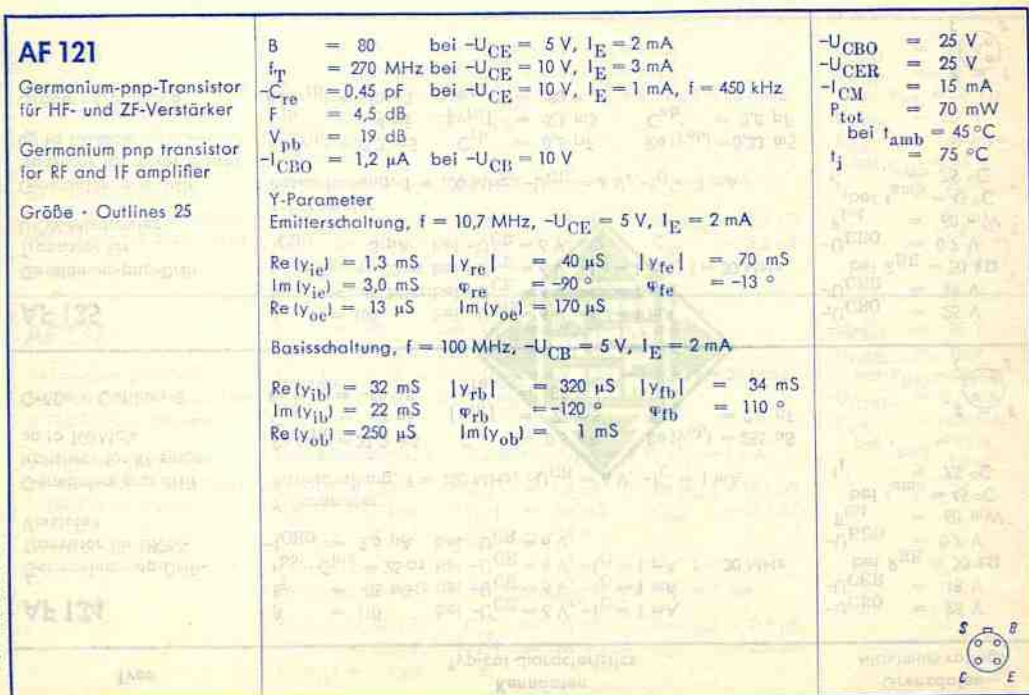 AF 121
Germanium-pnp-Transistor
für HF- und ZF-Verstärker
Germanium pnp transistor
for RF and IF amplifier
Größe · Outlines 25
B = 80 bei -U_CE = 5 V, I_E = 2 mA
f_T = 270 MHz bei -U_CE = 10 V, I_E = 3 mA
-C_re = 0,45 pF bei -U_CE = 10 V, I_E = 1 mA, f = 450 kHz
F = 4,5 dB
V_pb = 19 dB
-I_CBO = 1,2 µA bei -U_CB = 10 V
Y-Parameter
Emitterschaltung, f = 10,7 MHz, -U_CE = 5 V, I_E = 2 mA
Re (y_ie) = 1,3 mS |y_re| = 40 µS |y_fe| = 70 mS
Im (y_ie) = 3,0 mS φ_re = -90 ° φ_fe = -13 °
Re (y_oe) = 13 µS Im (y_oe) = 170 µS
Basisschaltung, f = 100 MHz, -U_CB = 5 V, I_E = 2 mA
Re (y_ib) = 32 mS |y_rb| = 320 µS |y_fb| = 34 mS
Im (y_ib) = 22 mS φ_rb = -120 ° φ_fb = 110 °
Re (y_ob) = 250 µS Im (y_ob) = 1 mS
-U_CBO = 25 V
-U_CER = 25 V
-I_CM = 15 mA
P_tot = 70 mW
bei t_amb = 45 °C
t_j = 75 °C
S B
C E